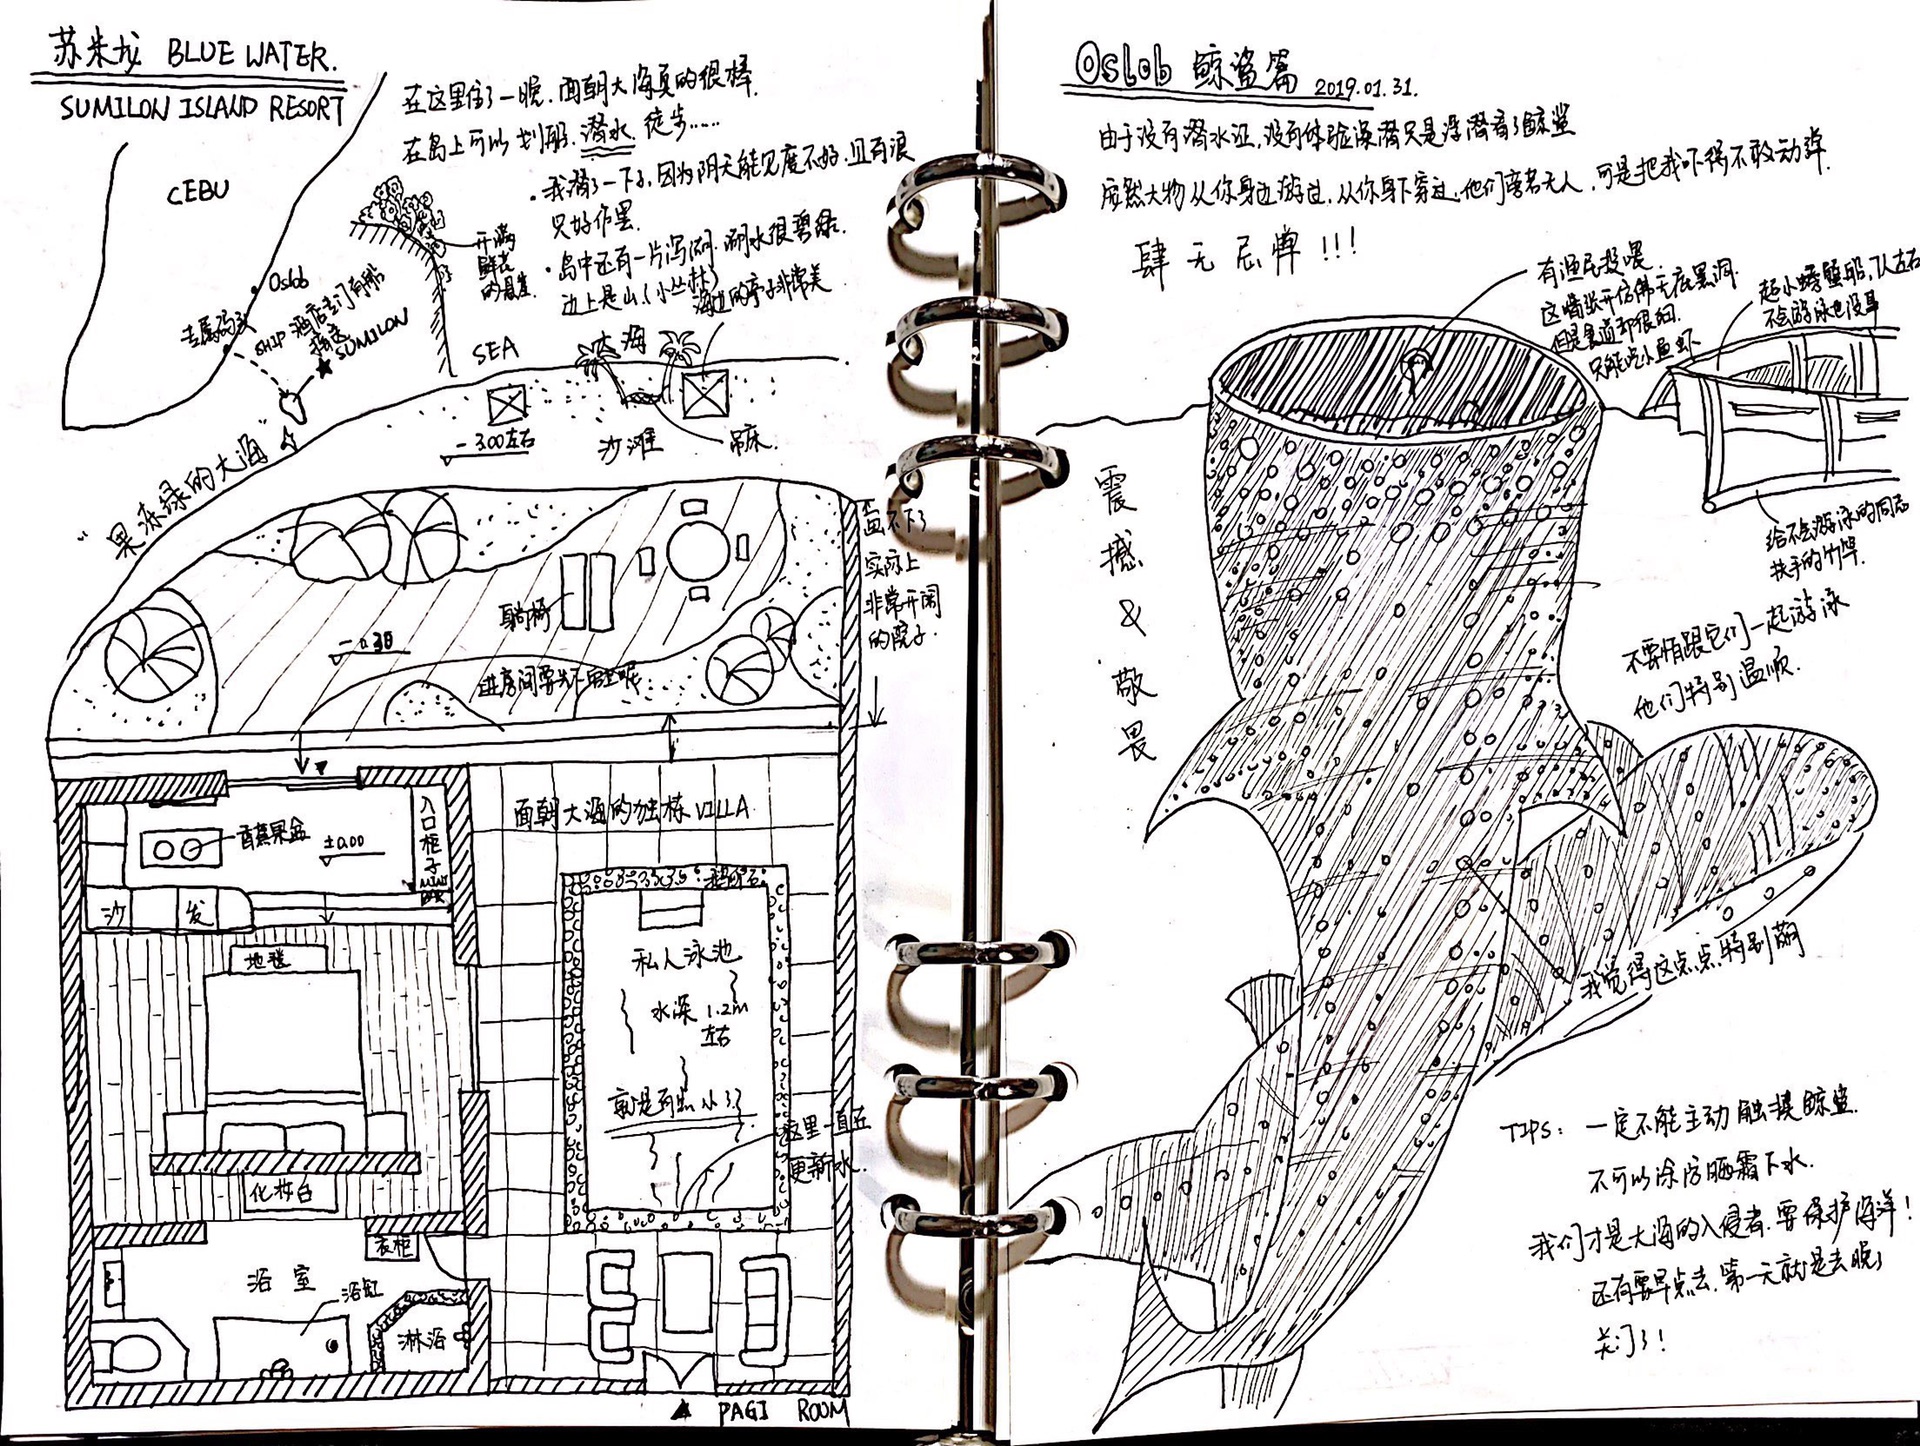 苏米龙 BLUE WATER.
SUMILON ISLAND RESORT
在这里住了一晚.面朝大海真的很棒.
在岛上可以划船.潜水.徒步......
·我潜了一下子,因为阴天能见度不好.且有浪
只好作罢.
·岛中还有一片泻湖.湖水很碧绿.
边上是山(小丛林)
海边的亭子非常美
开满
鲜花
的悬崖
CEBU
Oslob
去属码头
SHIP 酒店专门有船
接送
SUMILON
SEA
大海
-3.00左右
沙滩
吊床
"果冻绿的大海"
躺椅
-0.30
进房间要先下用里呢
画不下了
实际上
非常开阔
的院子.
香蕉果盆
±0.00
入口柜子 MINI BAR
沙发
面朝大海的独栋VILLA.
鹅卵石
地毯
私人泳池
水深 1.2m
左右
就是有点小??
这里一直在
更新水.
化妆台
衣柜
浴室
浴缸
淋浴
PAGI ROOM
Oslob 鲸鲨篇 2019.01.31.
由于没有潜水证,没有体验深潜只是浮潜看了鲸鲨
庞然大物从你身边游过,从你身下穿过,他们旁若无人,可是把我吓得不敢动弹.
肆无忌惮!!!
有渔民投喂.
这嘴张开仿佛无底黑洞.
但是食道却很细.
只能吃小鱼虾
超小螃蟹船,队左右
不会游泳也没事
给不会游泳的同志
扶手的竹竿.
震撼&敬畏
不要怕跟它们一起游泳
他们特别温顺.
我觉得这点点特别萌
TIPS: 一定不能主动触摸鲸鲨.
不可以涂防晒霜下水.
我们才是大海的入侵者.要保护海洋!
还有要早点去.第一天就是去晚了
关门了!